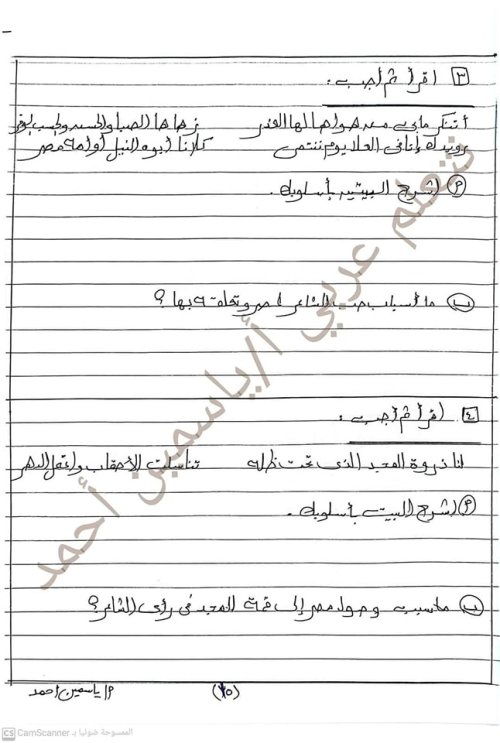 ٣ اقرأ ثم أجب :
أتنكر ما بي من هواها لها العذر زهاها الصبا والحسن والحب
رويدك إنا في العلا يوم ننتمي كلانا أبوه النيل أو أمه مصر
(أ) اشرح البيتين بأسلوبك .
(ب) ما أسباب حب الشاعر لمصر وتعلقه بها ؟
٤ اقرأ ثم أجب :
لنا ذروة المجد الذي تحت ظله تناسلت الأحقاب واكتهل الدهر
(أ) اشرح البيت بأسلوبك .
(ب) ما سبب وصول مصر إلى قمة المجد في رأي الشاعر ؟
(١٥)
أ/ياسمين أحمد
نتعلم عربي أ/ياسمين أحمد
CS CamScanner الممسوحة ضوئيا بـ